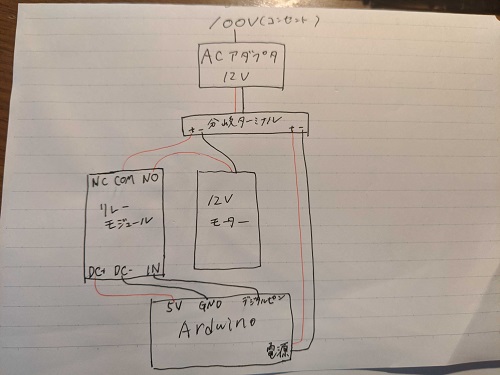 100V(コンセント)
ACアダプタ
12V
分岐ターミナル
+ - + -
NC COM NO
リレー
モジュール
12V
モーター
DC+ DC- IN
5V GND デジタルピン
Arduino
電源